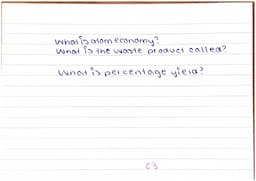 What is atom economy?
What is the waste product called?
What is percentage yield?
C3